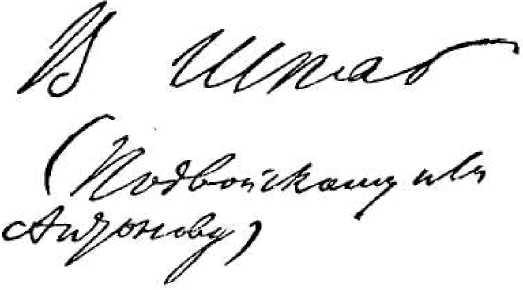 В Штаб
(Подвойскому или
Антонову)